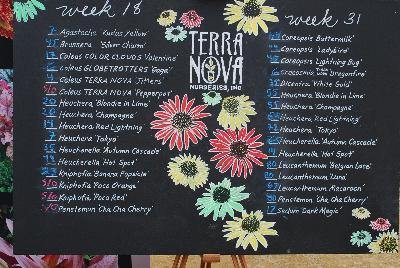 week 18
Agastache 'Kudos Yellow'
Brunnera 'Silver Charm'
Coleus COLOR CLOUDS 'Valentine'
Coleus GLOBETROTTERS
Coleus TERRA NOVA 'Jitters'
Coleus TERRA NOVA 'Pepperpot'
Heuchera 'Blondie in Lime'
Heuchera 'Champagne'
Heuchera 'Red Lightning'
Heuchera 'Tokyo'
Heucherella 'Autumn Cascade'
Heucherella 'Hot Spot'
Kniphofia 'Banana Popsicle'
Kniphofia 'Poco Orange'
Kniphofia 'Poco Red'
Penstemon 'Cha Cha Cherry'
TERRA
NOVA
NURSERIES, INC
week 31
Coreopsis 'Buttermilk'
Coreopsis 'Ladybird'
Coreopsis 'Lightning Bug'
Crocosmia 'Dragonfire'
Dicentra 'White Gold'
Heuchera 'Blondie in Lime'
Heuchera 'Champagne'
Heuchera 'Red Lightning'
Heuchera 'Tokyo'
Heucherella 'Autumn Cascade'
Heucherella 'Hot Spot'
Leucanthemum 'Belgian Lace'
Leucanthemum 'Luna'
Leucanthemum 'Macaroon'
Penstemon 'Cha Cha Cherry'
Sedum 'Dark Magic'